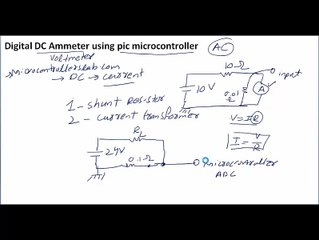 Digital DC Ammeter using pic microcontroller
AC
voltmeter
microcontrollerslab.com
→ DC → current
10Ω
input
10V
0.01
Ω
A
1 - shunt Resistor
2 - current transformer
V = IR
I = V/R
RL
24V
0.1Ω
microcontroller
ADC